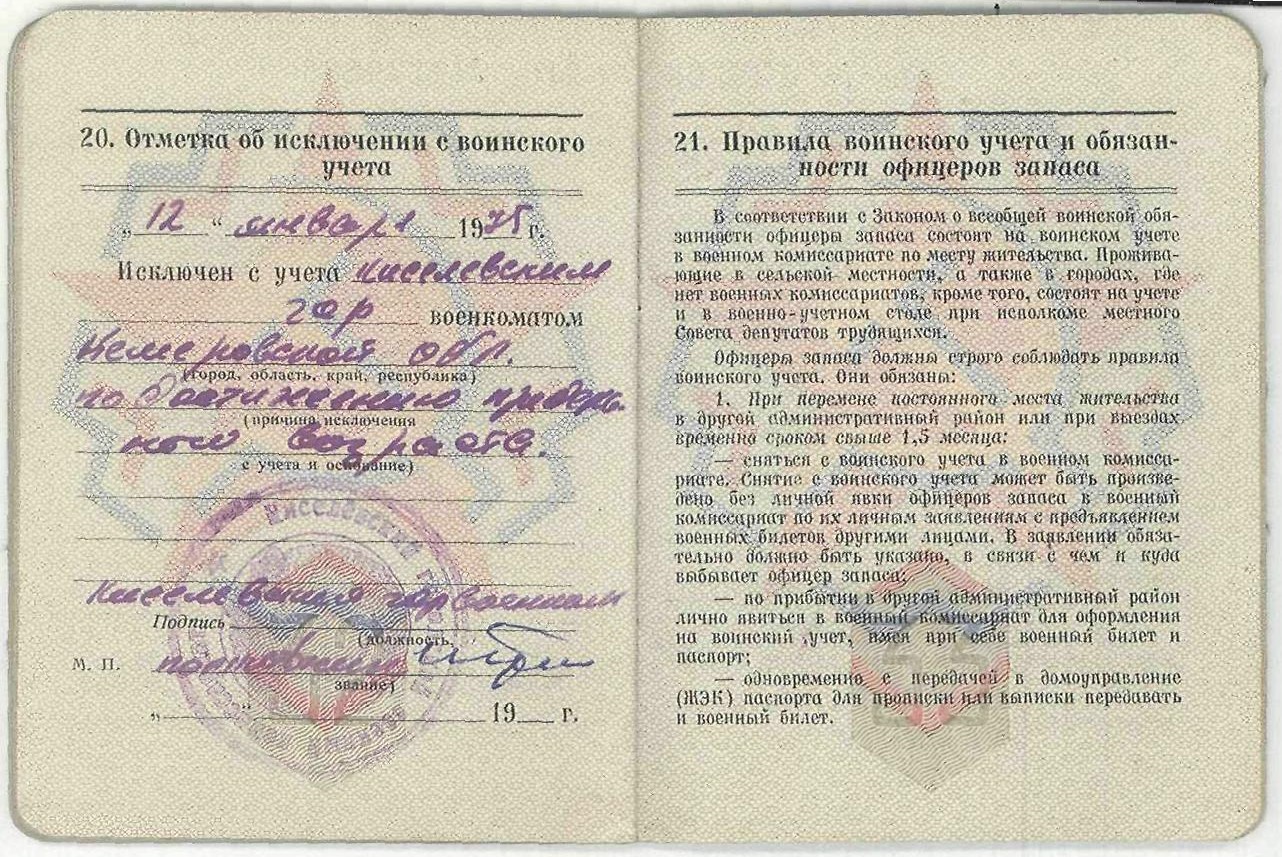 20. Отметка об исключении с воинского
учета
„12“ января 1975 г.
Исключен с учета Киселевским
гор военкоматом
Кемеровской обл.
(город, область, край, республика)
по достижению предель
(причина исключения
ного возраста.
с учета и основание)
Киселевский горвоенком
Подпись
(должность,
М. П. полковник
звание)
„ “ 19 г.
21. Правила воинского учета и обязан-
ности офицеров запаса
В соответствии с Законом о всеобщей воинской обя-
занности офицеры запаса состоят на воинском учете
в военном комиссариате по месту жительства. Прожива-
ющие в сельской местности, а также в городах, где
нет военных комиссариатов, кроме того, состоят на учете
и в военно-учетном столе при исполкоме местного
Совета депутатов трудящихся.
Офицеры запаса должны строго соблюдать правила
воинского учета. Они обязаны:
1. При перемене постоянного места жительства
в другой административный район или при выездах
временно сроком свыше 1,5 месяца:
— сняться с воинского учета в военном комисса-
риате. Снятие с воинского учета может быть произве-
дено без личной явки офицеров запаса в военный
комиссариат по их личным заявлениям с предъявлением
военных билетов другими лицами. В заявлении обяза-
тельно должно быть указано, в связи с чем и куда
выбывает офицер запаса;
— по прибытии в другой административный район
лично явиться в военный комиссариат для оформления
на воинский учет, имея при себе военный билет и
паспорт;
— одновременно с передачей в домоуправление
(ЖЭК) паспорта для прописки или выписки передавать
и военный билет.